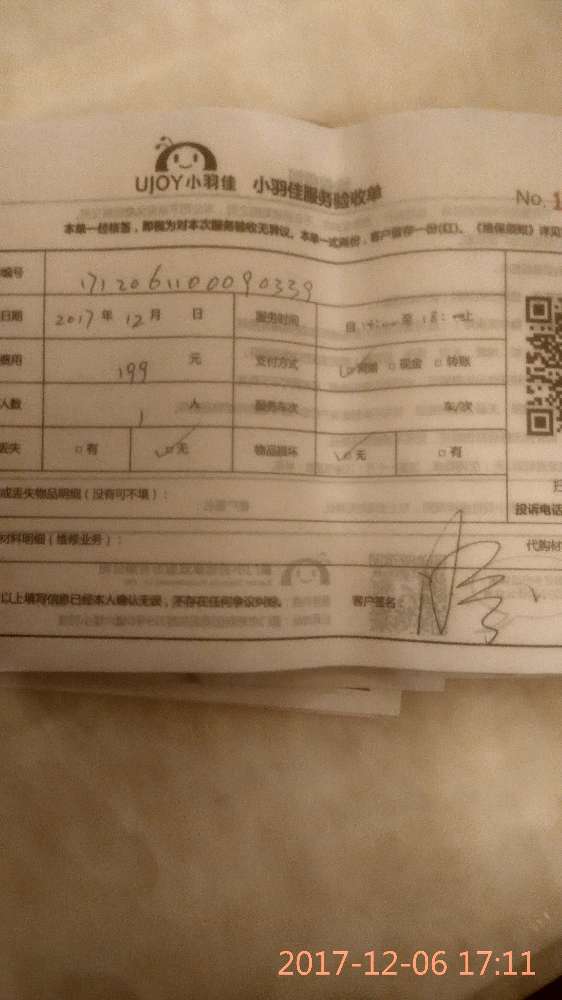 UJOY小羽佳 小羽佳服务验收单
No.1
本单一经核签，即视为对本次服务验收无异议。本单一式两份，客户留存一份(红)。《维保须知》详见
编号 1712061100090339
日期 2017年12月 日 服务时间 自 至18: 止
费用 199元 支付方式 □ □现金 □转账
人数 1人 服务车次 车/次
丢失 □有 □无 物品损坏 □无 □有
或丢失物品明细（没有可不填）：
投诉电话
材料明细（维修业务）： 代购材
以上填写信息已经本人确认无误，不存在任何争议纠纷。 客户签名：
2017-12-06 17:11